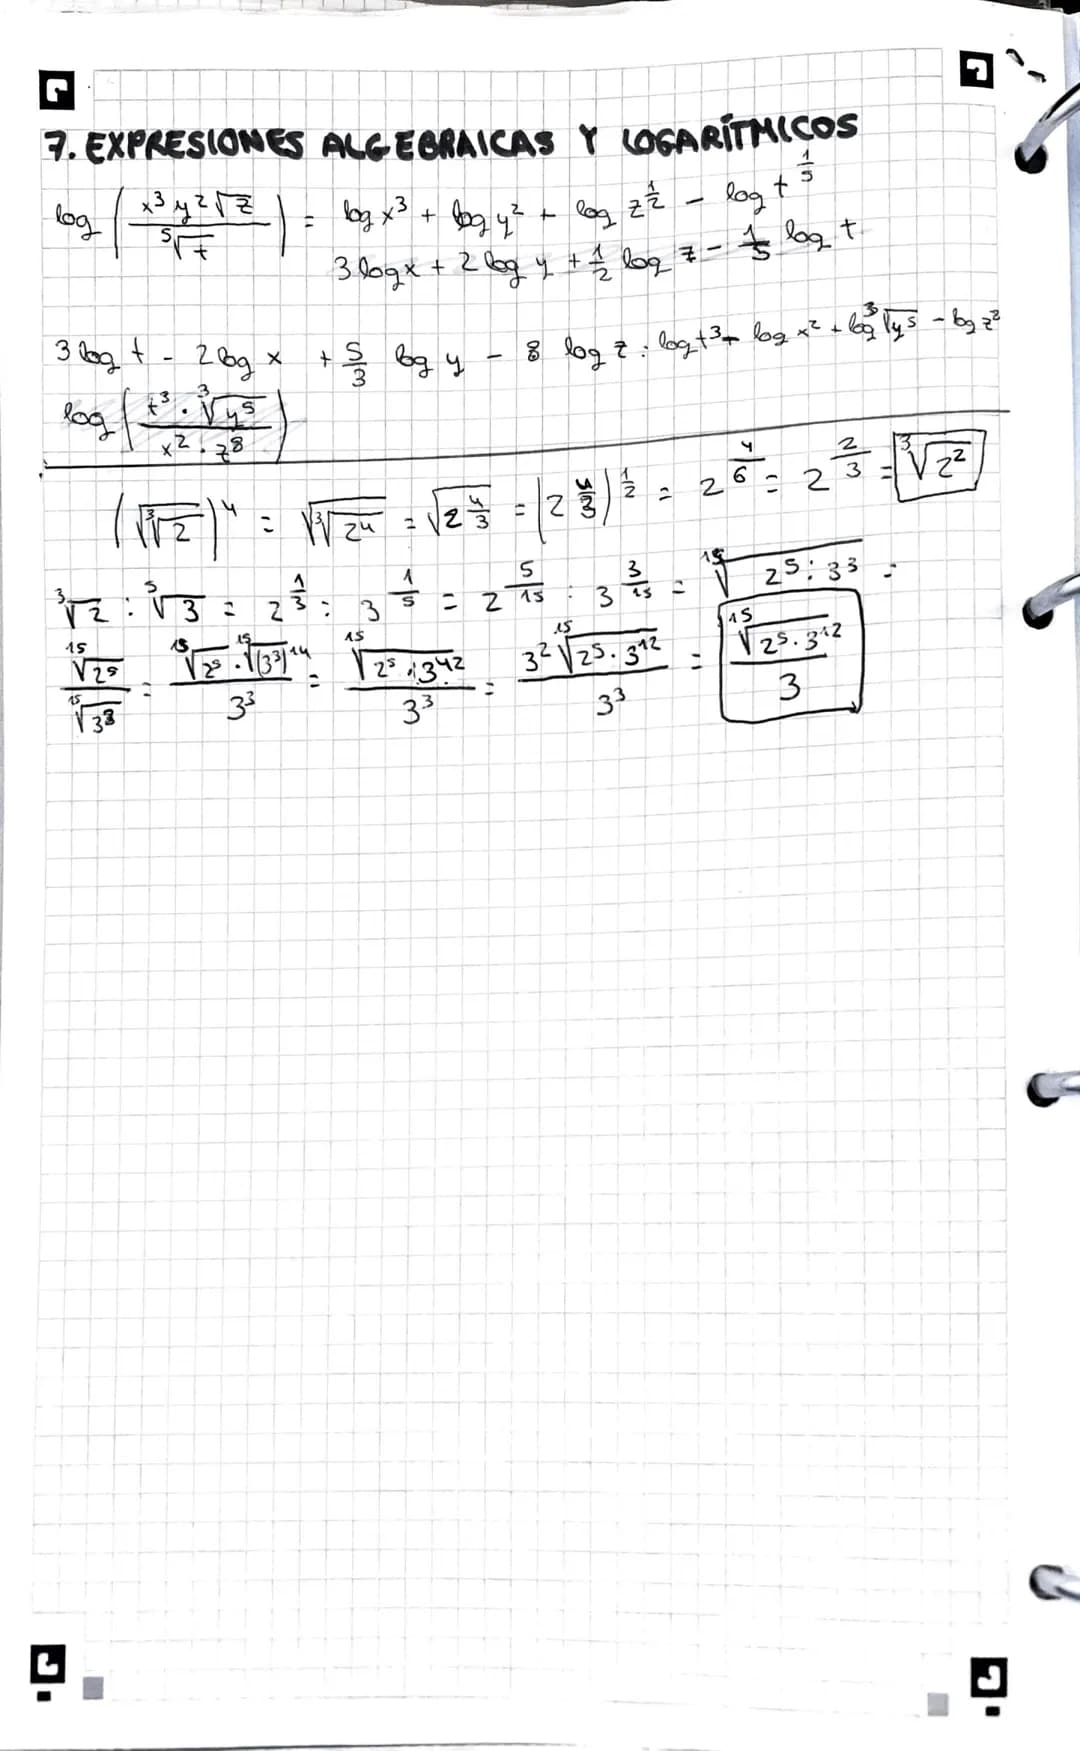 7. EXPRESIONES ALGEBRAICAS Y LOGARÍTMICOS
log (x³y²√z / ⁵√t) = log x³ + log y² + log z^(1/2) - log t^(1/5)
3 log x + 2 log y + 1/2 log z - 1/5 log t
3 log t - 2 log x + 5/3 log y - 8 log z : log t³ - log x² + log ³√y⁵ - log z⁸
log (t³ · ³√y⁵ / x² · z⁸)
(√³√2)⁴ = √³√2⁴ = √2^(4/3) = (2^(4/3))^(1/2) = 2^(4/6) = 2^(2/3) = ³√2²
³√2 : ⁵√3 = 2^(1/3) : 3^(1/5) = 2^(5/15) : 3^(3/15) = ¹⁵√2⁵ : 3³ =
¹⁵√2⁵ / ¹⁵√3³ = ¹⁵√2⁵ · ¹⁵√(3³)¹⁴ / 3³ = ¹⁵√2⁵ · 3⁴² / 3³ = 3² ¹⁵√2⁵ · 3¹² / 3³ = ¹⁵√2⁵ · 3¹² / 3